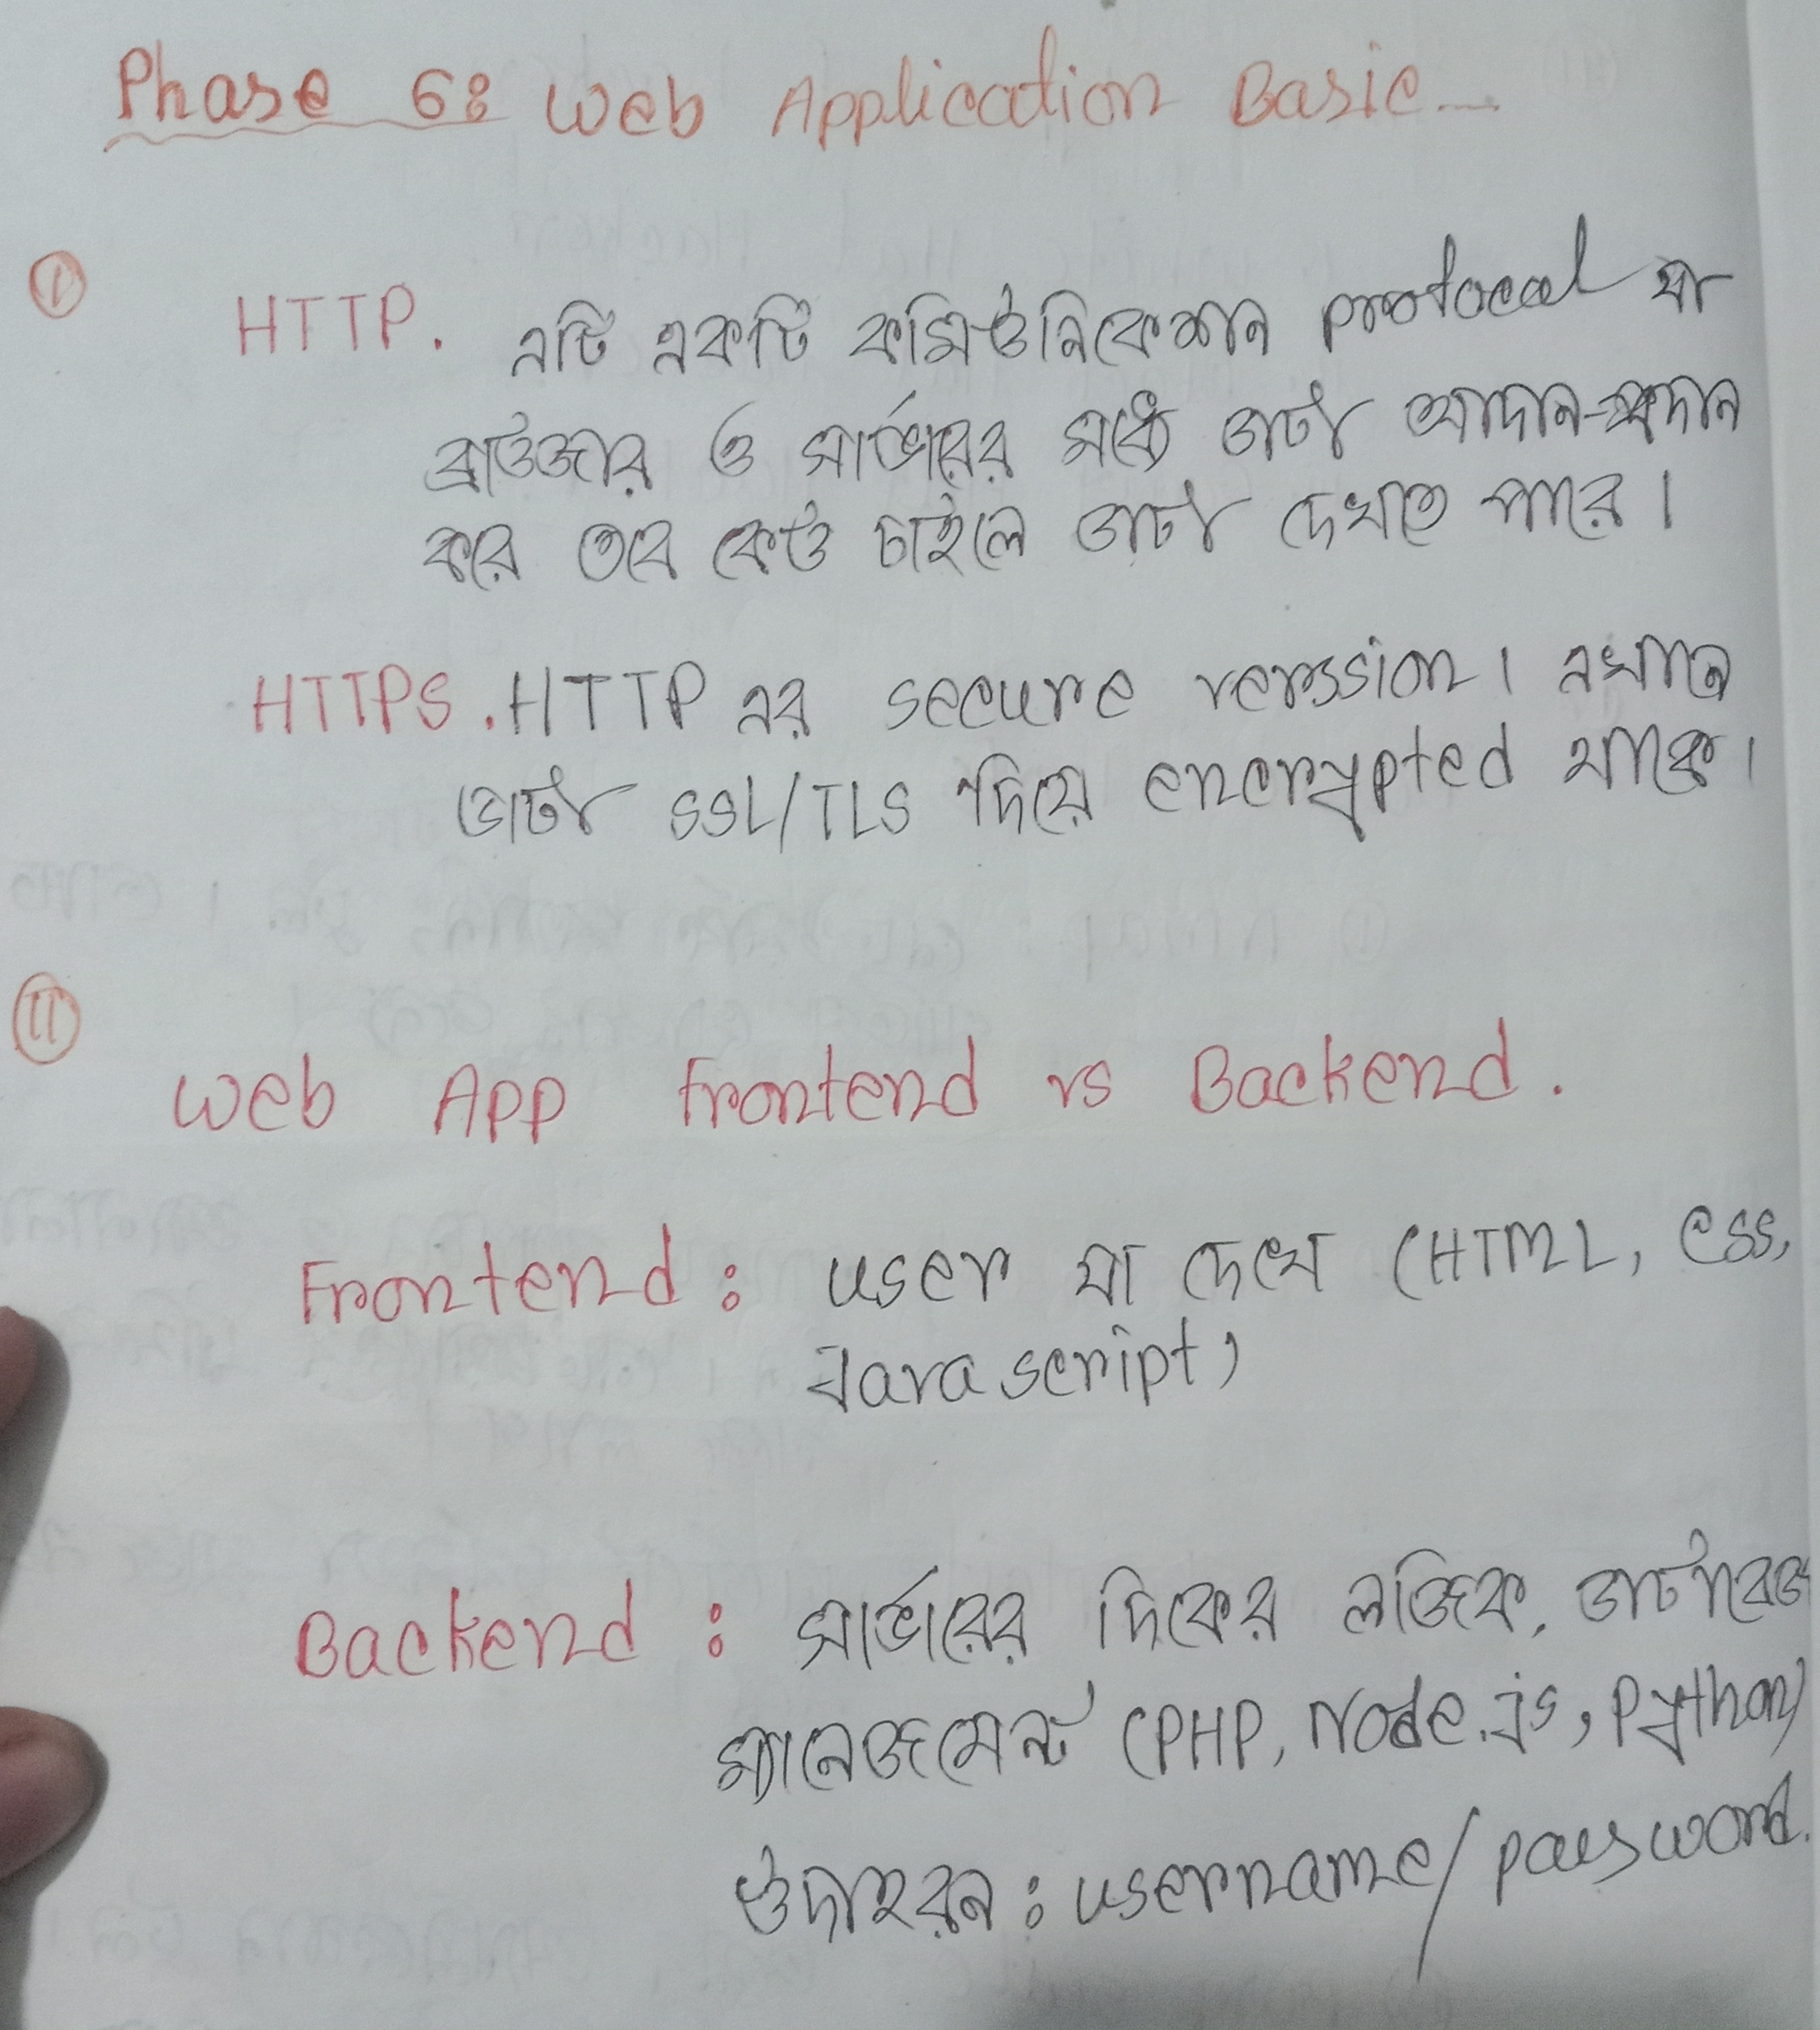 Phase 6: Web Application Basic
I
HTTP. এটি একটি কমিউনিকেশান protocal যা
ব্রাউজার ও সার্ভারের মধ্যে ডাটা আদান-প্রদান
করে তবে কেউ চাইলে ডাটা দেখতে পারে।
HTTPS. HTTP এর secure verssion। এখানে
ডাটা SSL/TLS দিয়ে encrypted থাকে।
II
Web App Frontend vs Backend.
Frontend: user যা দেখে (HTML, CSS,
Javascript)
Backend: সার্ভারের দিকের লজিক, ডাটাবেজ
ম্যানেজমেন্ট (PHP, Node.js, Python)
উদাহরন: username/password.